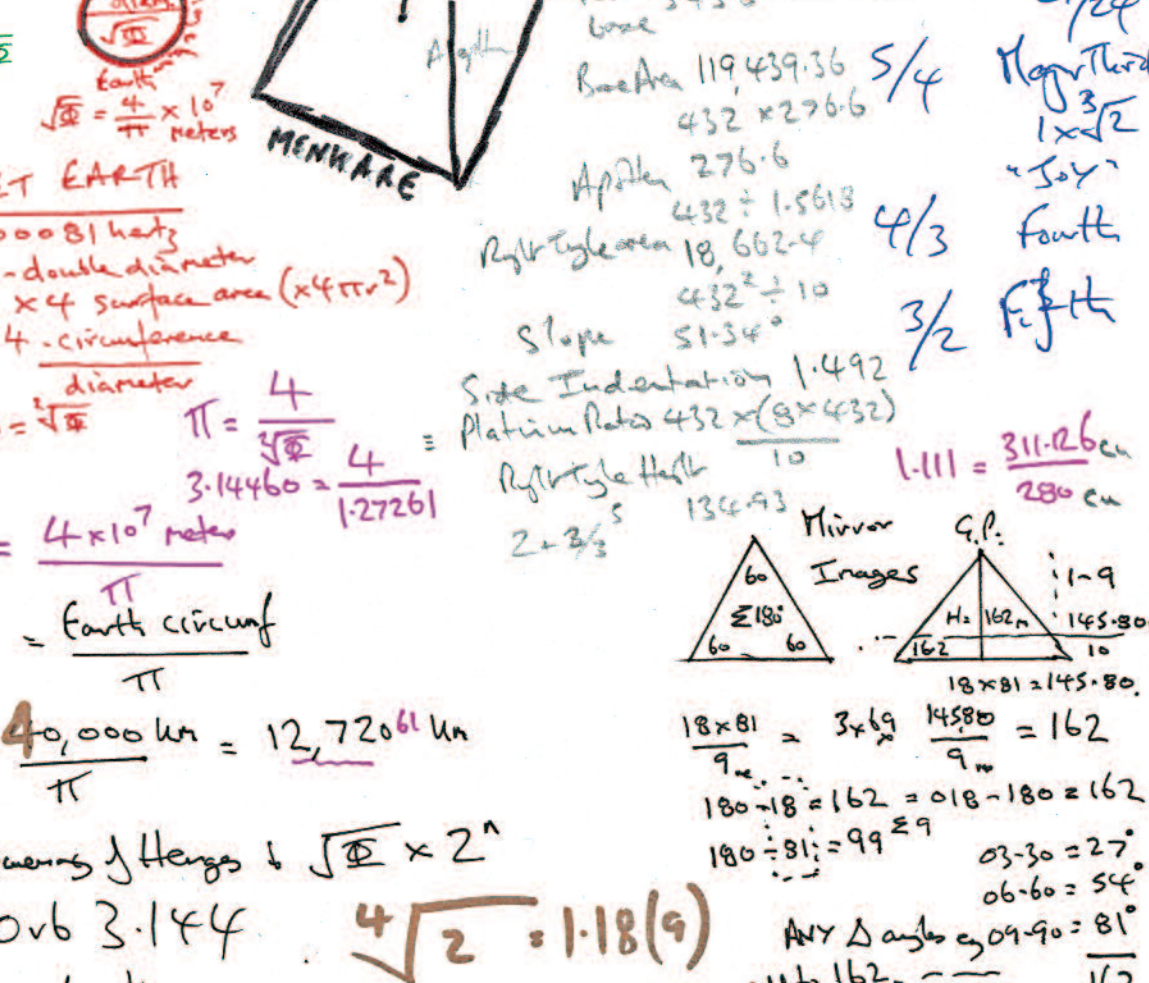 √Φ
Earth
√Φ = 4/π × 10⁷
meters
MENKARE
EARTH
00081 hertz
-double diameter
×4 surface area (×4πr²)
4 - circumference
diameter
= ²√Φ
π = 4/√Φ
3.14460 = 4/1.27261
= 4×10⁷ meters
π
= Earth circumf
π
40,000 km = 12,72061 km
π
of Henges √Φ × 2ⁿ
3.144
⁴√2 = 1.18(9)
base
Base Area 119,439.36
432 × 276.6
276.6
432 ÷ 1.5618
18,662.4
432² ÷ 10
Slope 51.34°
Side Indentation 1.492
≡ Platinum Ratio 432 × (8×432)
10
134.93
5/4
1×³√2
"Joy"
4/3 Fourth
3/2 Fifth
1.111 = 311.126 cu
280 cu
Mirror
Images
G.P.
60
Σ180°
60 60
H= 162m
162
1-9
145.80
10
18×81=145.80.
18×81 = 3×69 14580 = 162
9 9
180-18 = 162 = 018-180 = 162
180-81 = 99 Σ9
03-30 = 27°
06-60 = 54°
ANY Δ angles eg 09-90 = 81°
to 162
162